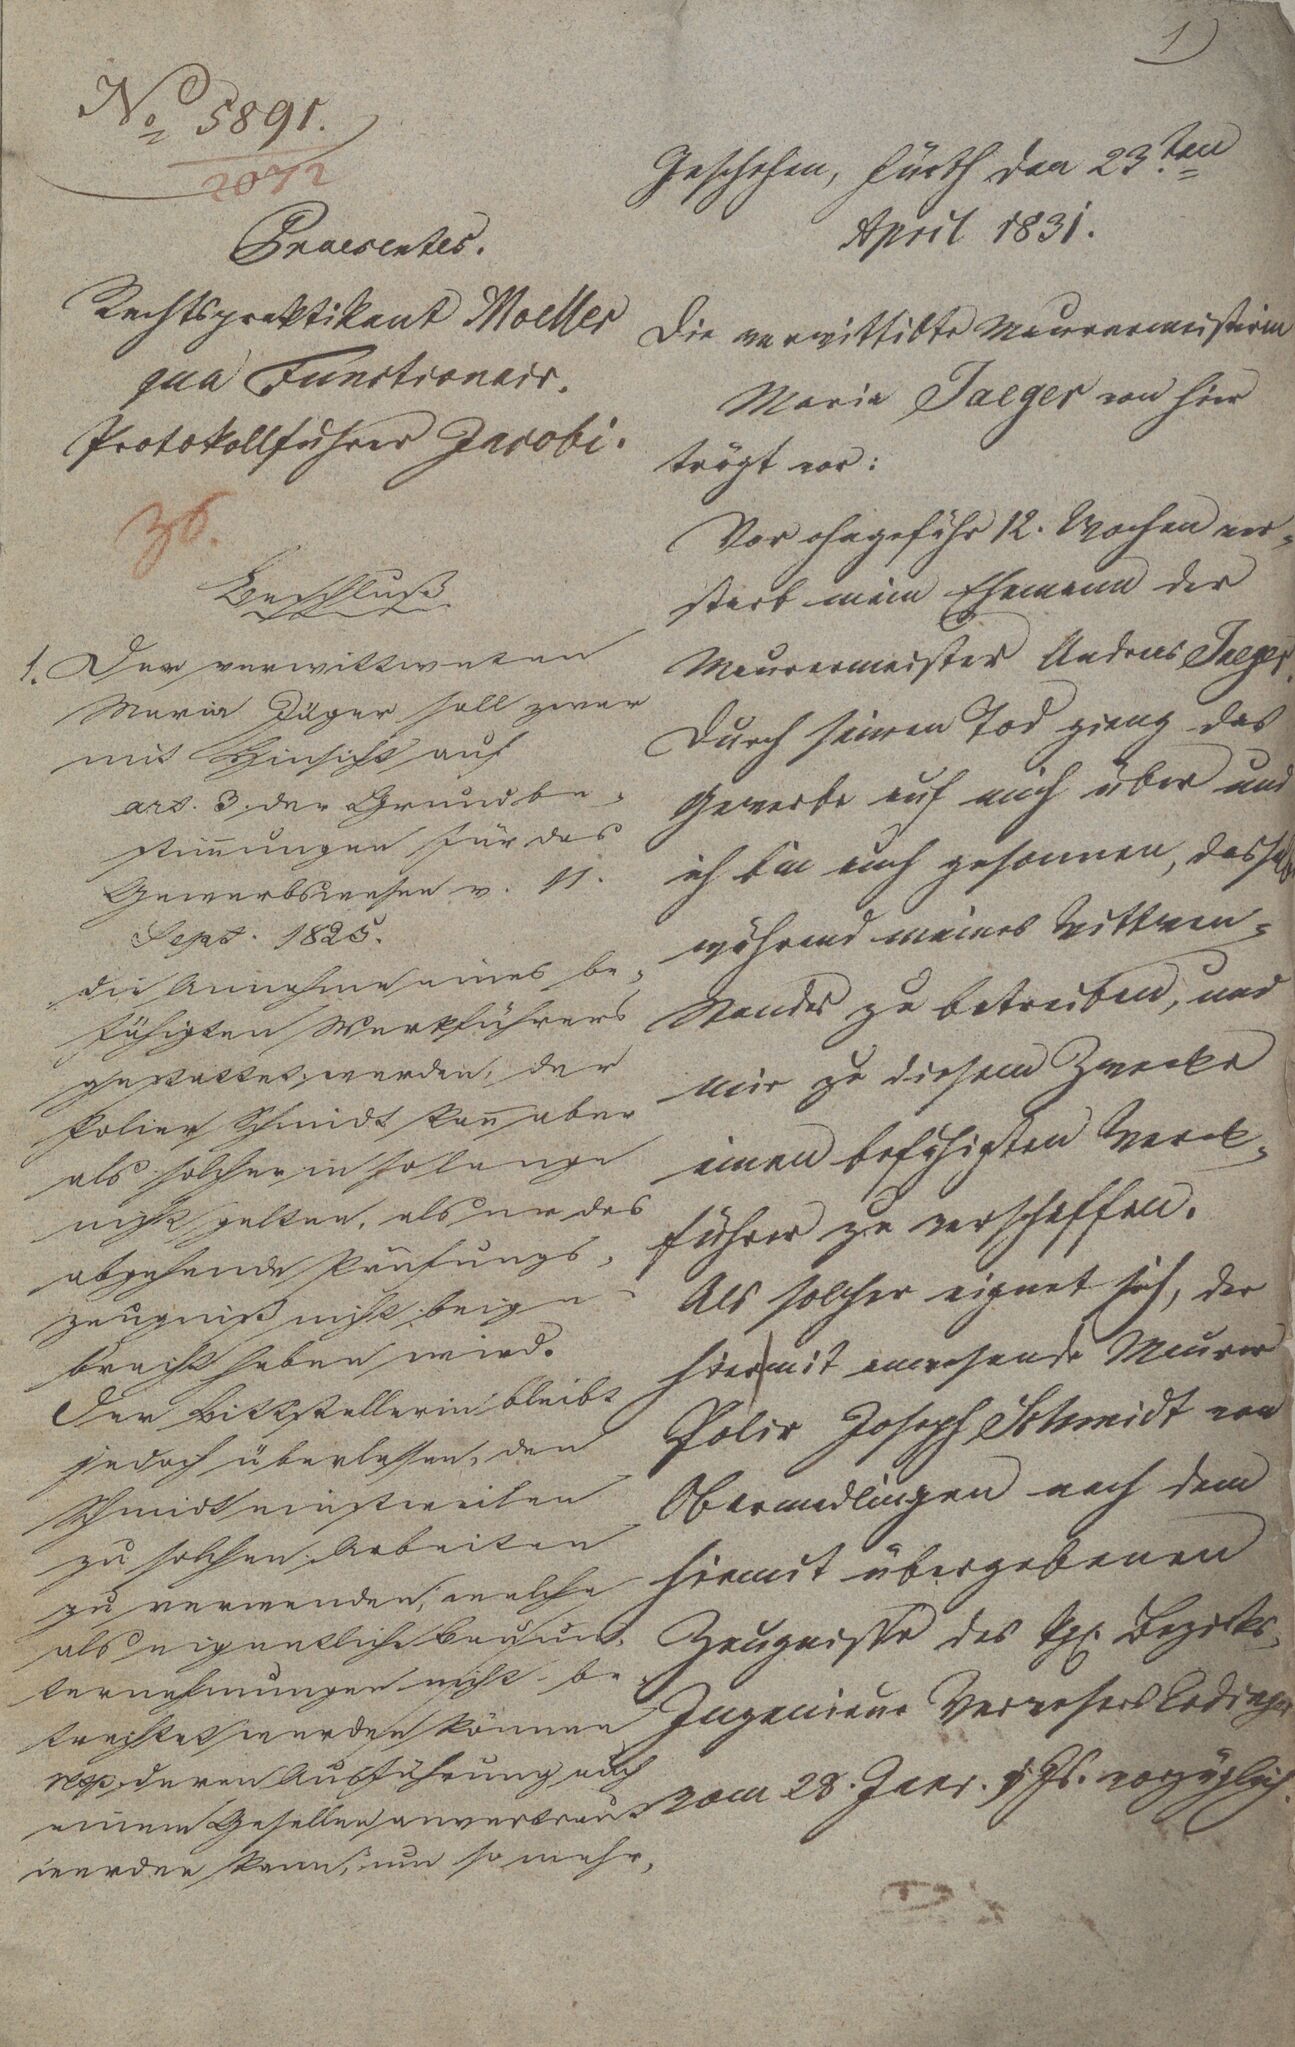 1
No 5891.
2072
Praesentes.
Rechtspraktikant Moeller
qua Functionair.
Protokollführer Jacobi.
36.
Beschluß
1. Der verwittweten
Maria Jäger soll zwar
mit Hinsicht auf
art. 3. der Grundbe-
stim̄ungen für das
Gewerbswesen v. 11.
Sept. 1825.
die Annahme eines be-
fähigten Werkführers
gestattet werden, der
Polier Schmidt kan̄ aber
als solcher in so lange
nicht gelten, als er das
abgehende Prüfungs-
zeugniß nicht beige-
bracht haben wird.
Der Bittstellerin bleibt
jedoch überlassen, den
Schmidt einstweilen
zu solchen Arbeiten
zu verwenden, welche
als eigentliche Bauun-
ternehmungen nicht be-
trachtet werden können
resp. deren Ausführung auch
einem Gesellen anvertraut
werden kann, um so mehr,
Geschehen, Fürth den 23.ten
April 1831.
Die verwittibte Maurermeisterin
Maria Jaeger von hier
trägt vor:
Vor ohngefähr 12. Wochen ver-
starb mein Ehemann der
Maurermeister Andreas Jaeger.
Durch seinen Tod gieng das
Gewerbe auf mich über und
ich bin auch gesonnen, dasselbe
während meines Wittwen-
standes zu betreiben, und
mir zu diesem Zwecke
einen befähigten Werk-
führer zu verschaffen.
Als solcher eignet sich, der
hiermit anwesende Maurer
Polir Joseph Schmidt von
Obermedlingen nach dem
hiemit übergebenen
Zeugnisse des kgl. Bezirks-
Ingenieur Verwesers
vom 28. Janr. d Js. vorzüglich.